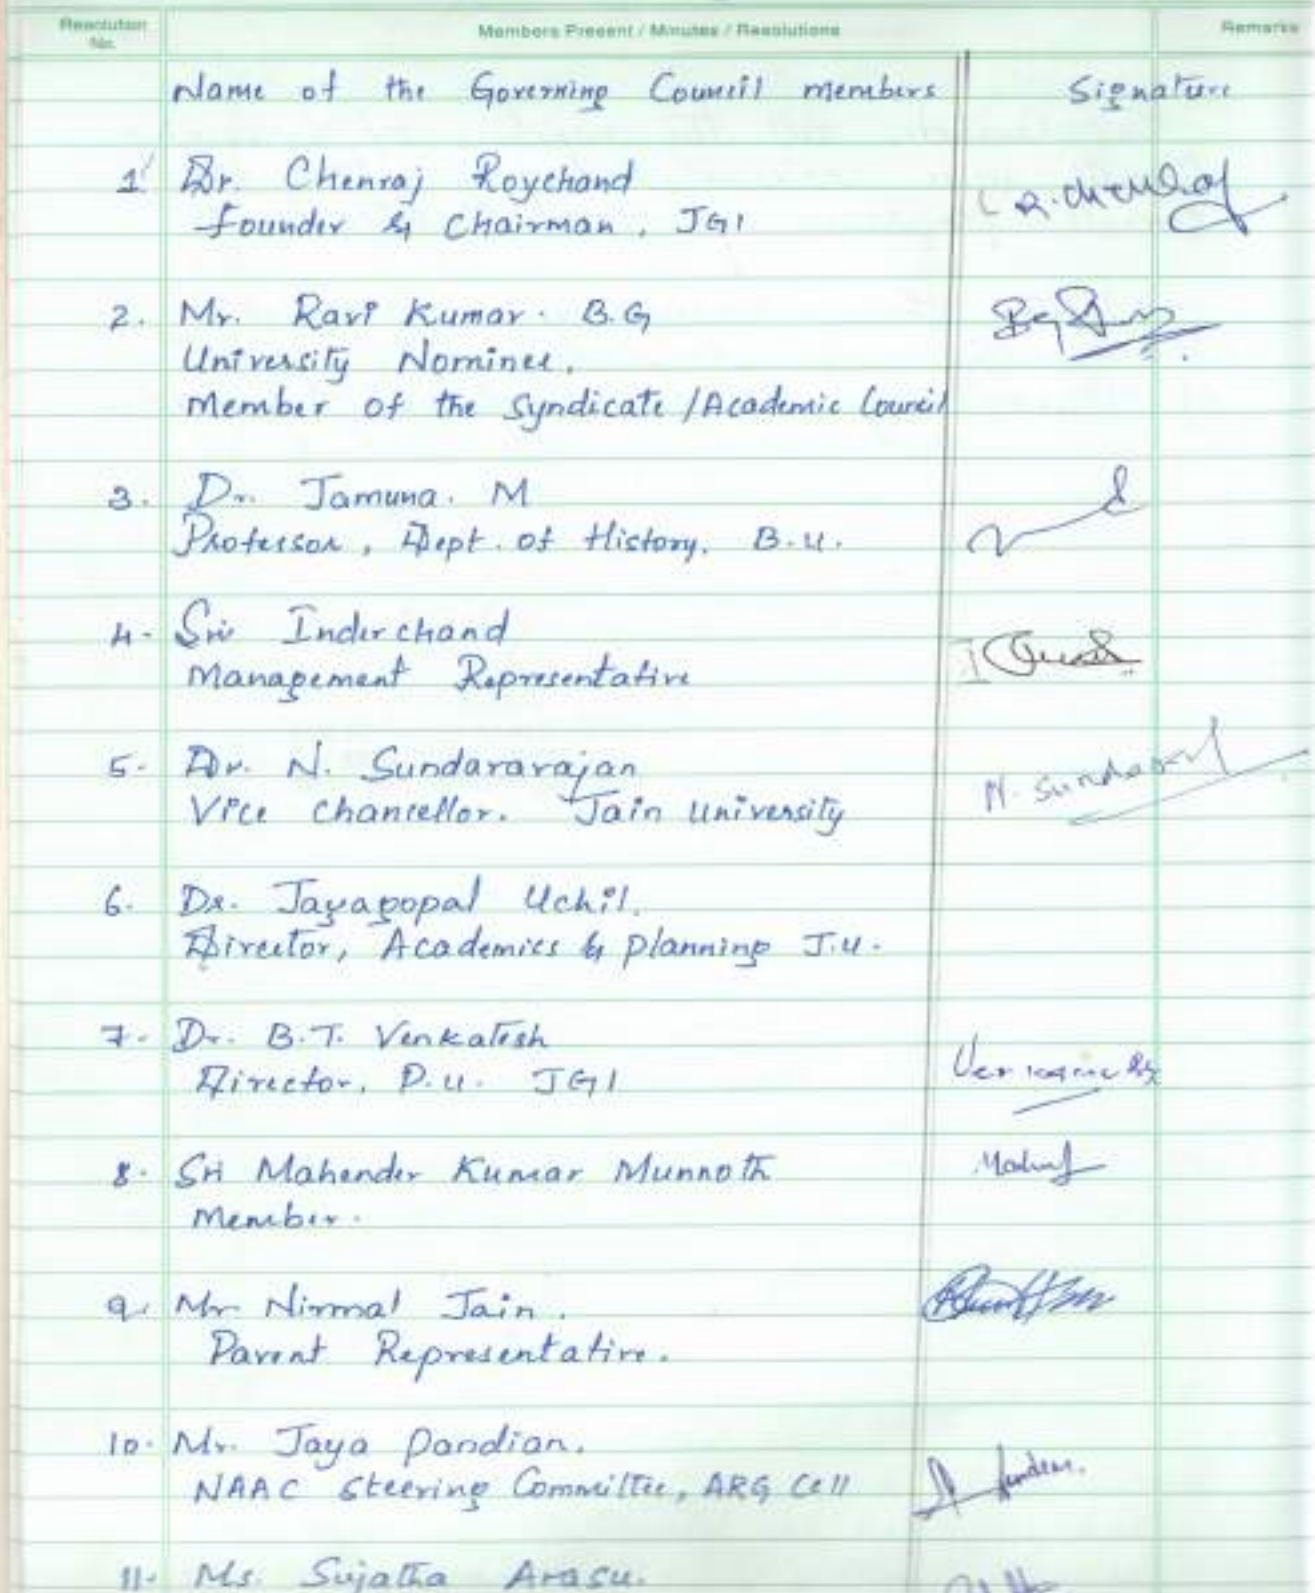 Resolution No. Members Present / Minutes / Resolutions Remarks
Name of the Governing Council members Signature
1. Dr. Chenraj Roychand
Founder & Chairman, JGI
2. Mr. Ravi Kumar. B.G
University Nominee,
Member of the Syndicate / Academic Council
3. Dr. Jamuna. M
Professor, Dept. of History. B.U.
4. Sri Inderchand
Management Representative
5. Dr. N. Sundararajan N. Sundararaj
Vice Chancellor. Jain University
6. Dr. Jayagopal Uchil.
Director, Academics & Planning J.U.
7. Dr. B.T. Venkatesh
Director, P.U. JGI
8. Sri Mahender Kumar Munnoth
Member.
9. Mr. Nirmal Jain.
Parent Representative.
10. Mr. Jaya Pandian.
NAAC Steering Committee, ARG Cell
11. Ms. Sujatha Arasu.